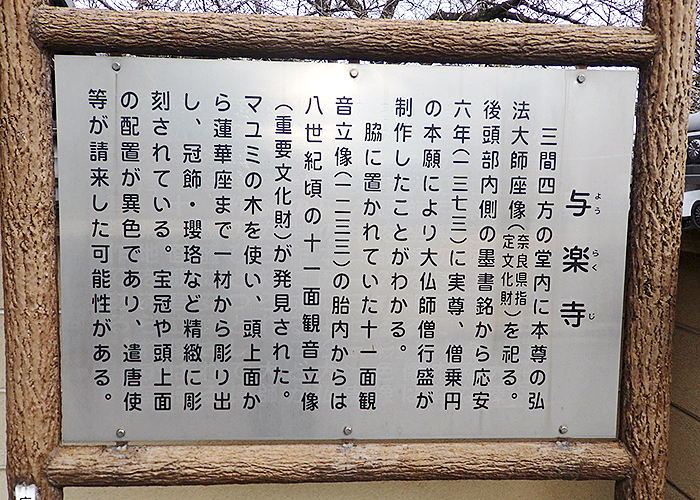 与楽寺
よう らく じ
三間四方の堂内に本尊の弘
法大師座像(奈良県指定文化財)を祀る。
後頭部内側の墨書銘から応安
六年(一三七三)に実尊、僧乗円
の本願により大仏師僧行盛が
制作したことがわかる。
脇に置かれていた十一面観
音立像(一二三三)の胎内からは
八世紀頃の十一面観音立像
(重要文化財)が発見された。
マユミの木を使い、頭上面か
ら蓮華座まで一材から彫り出
し、冠飾・瓔珞など精緻に彫
刻されている。宝冠や頭上面
の配置が異色であり、遣唐使
等が請来した可能性がある。